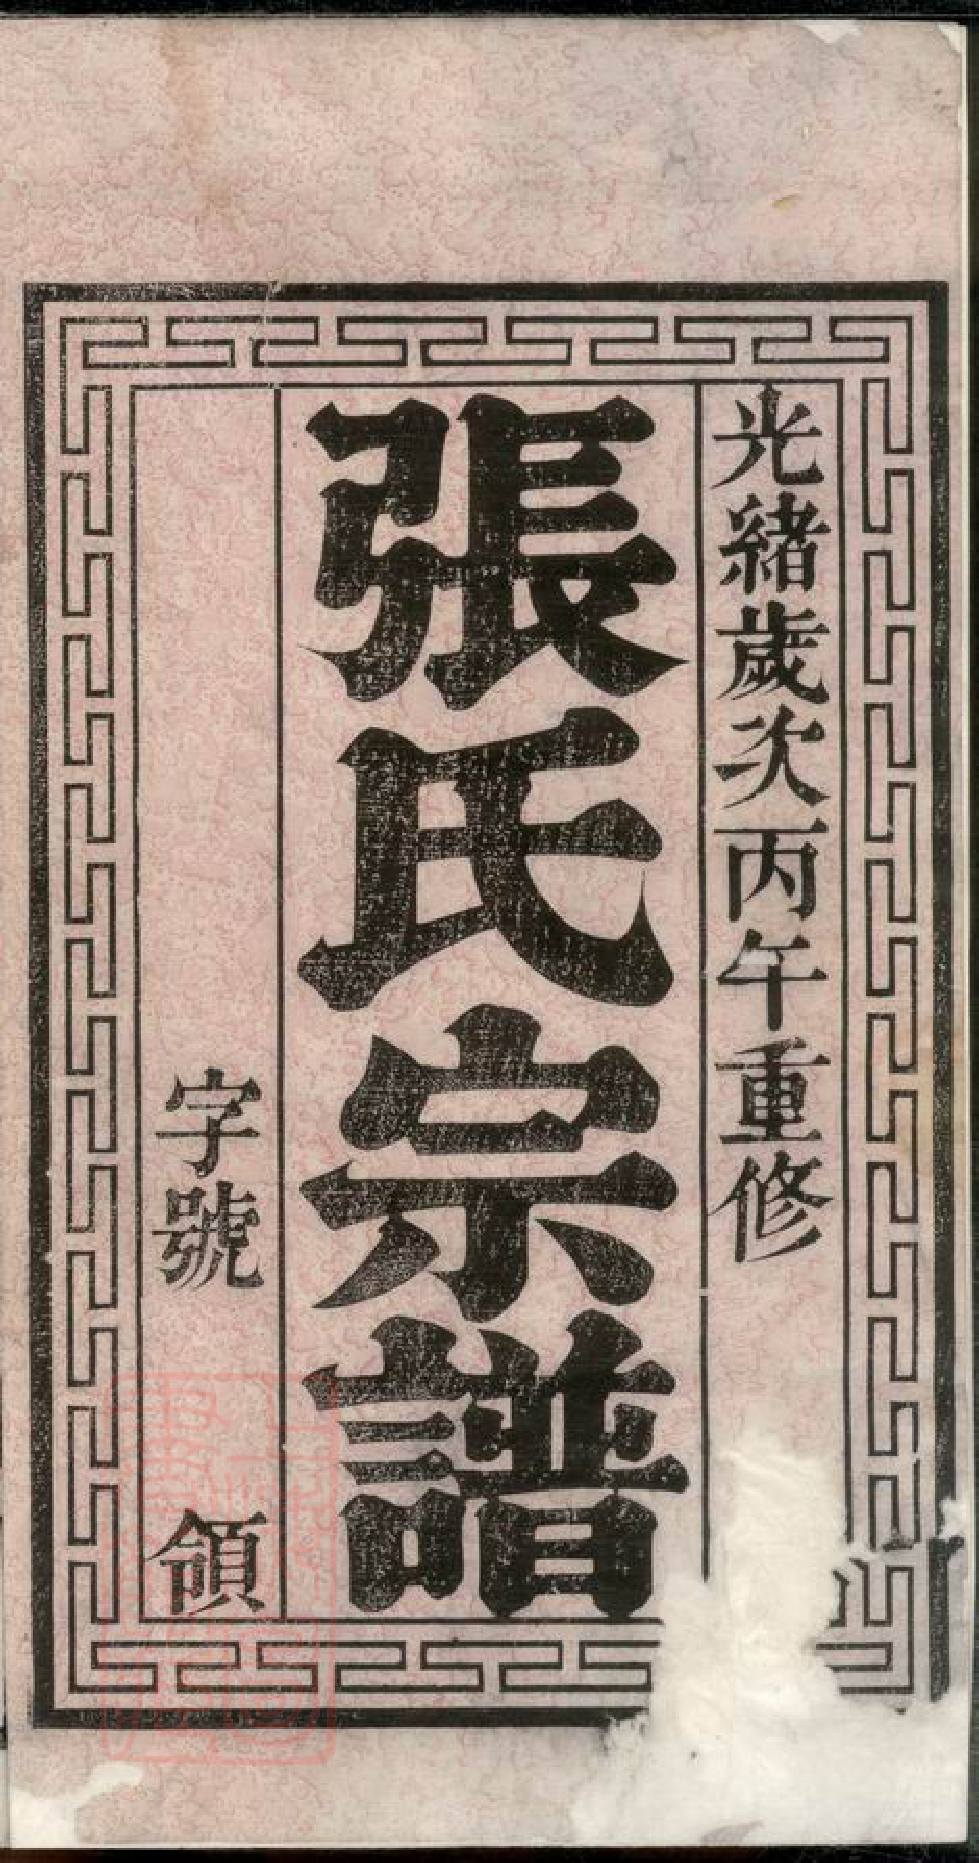 光緒歲次丙午重修
張氏宗譜
字號 領